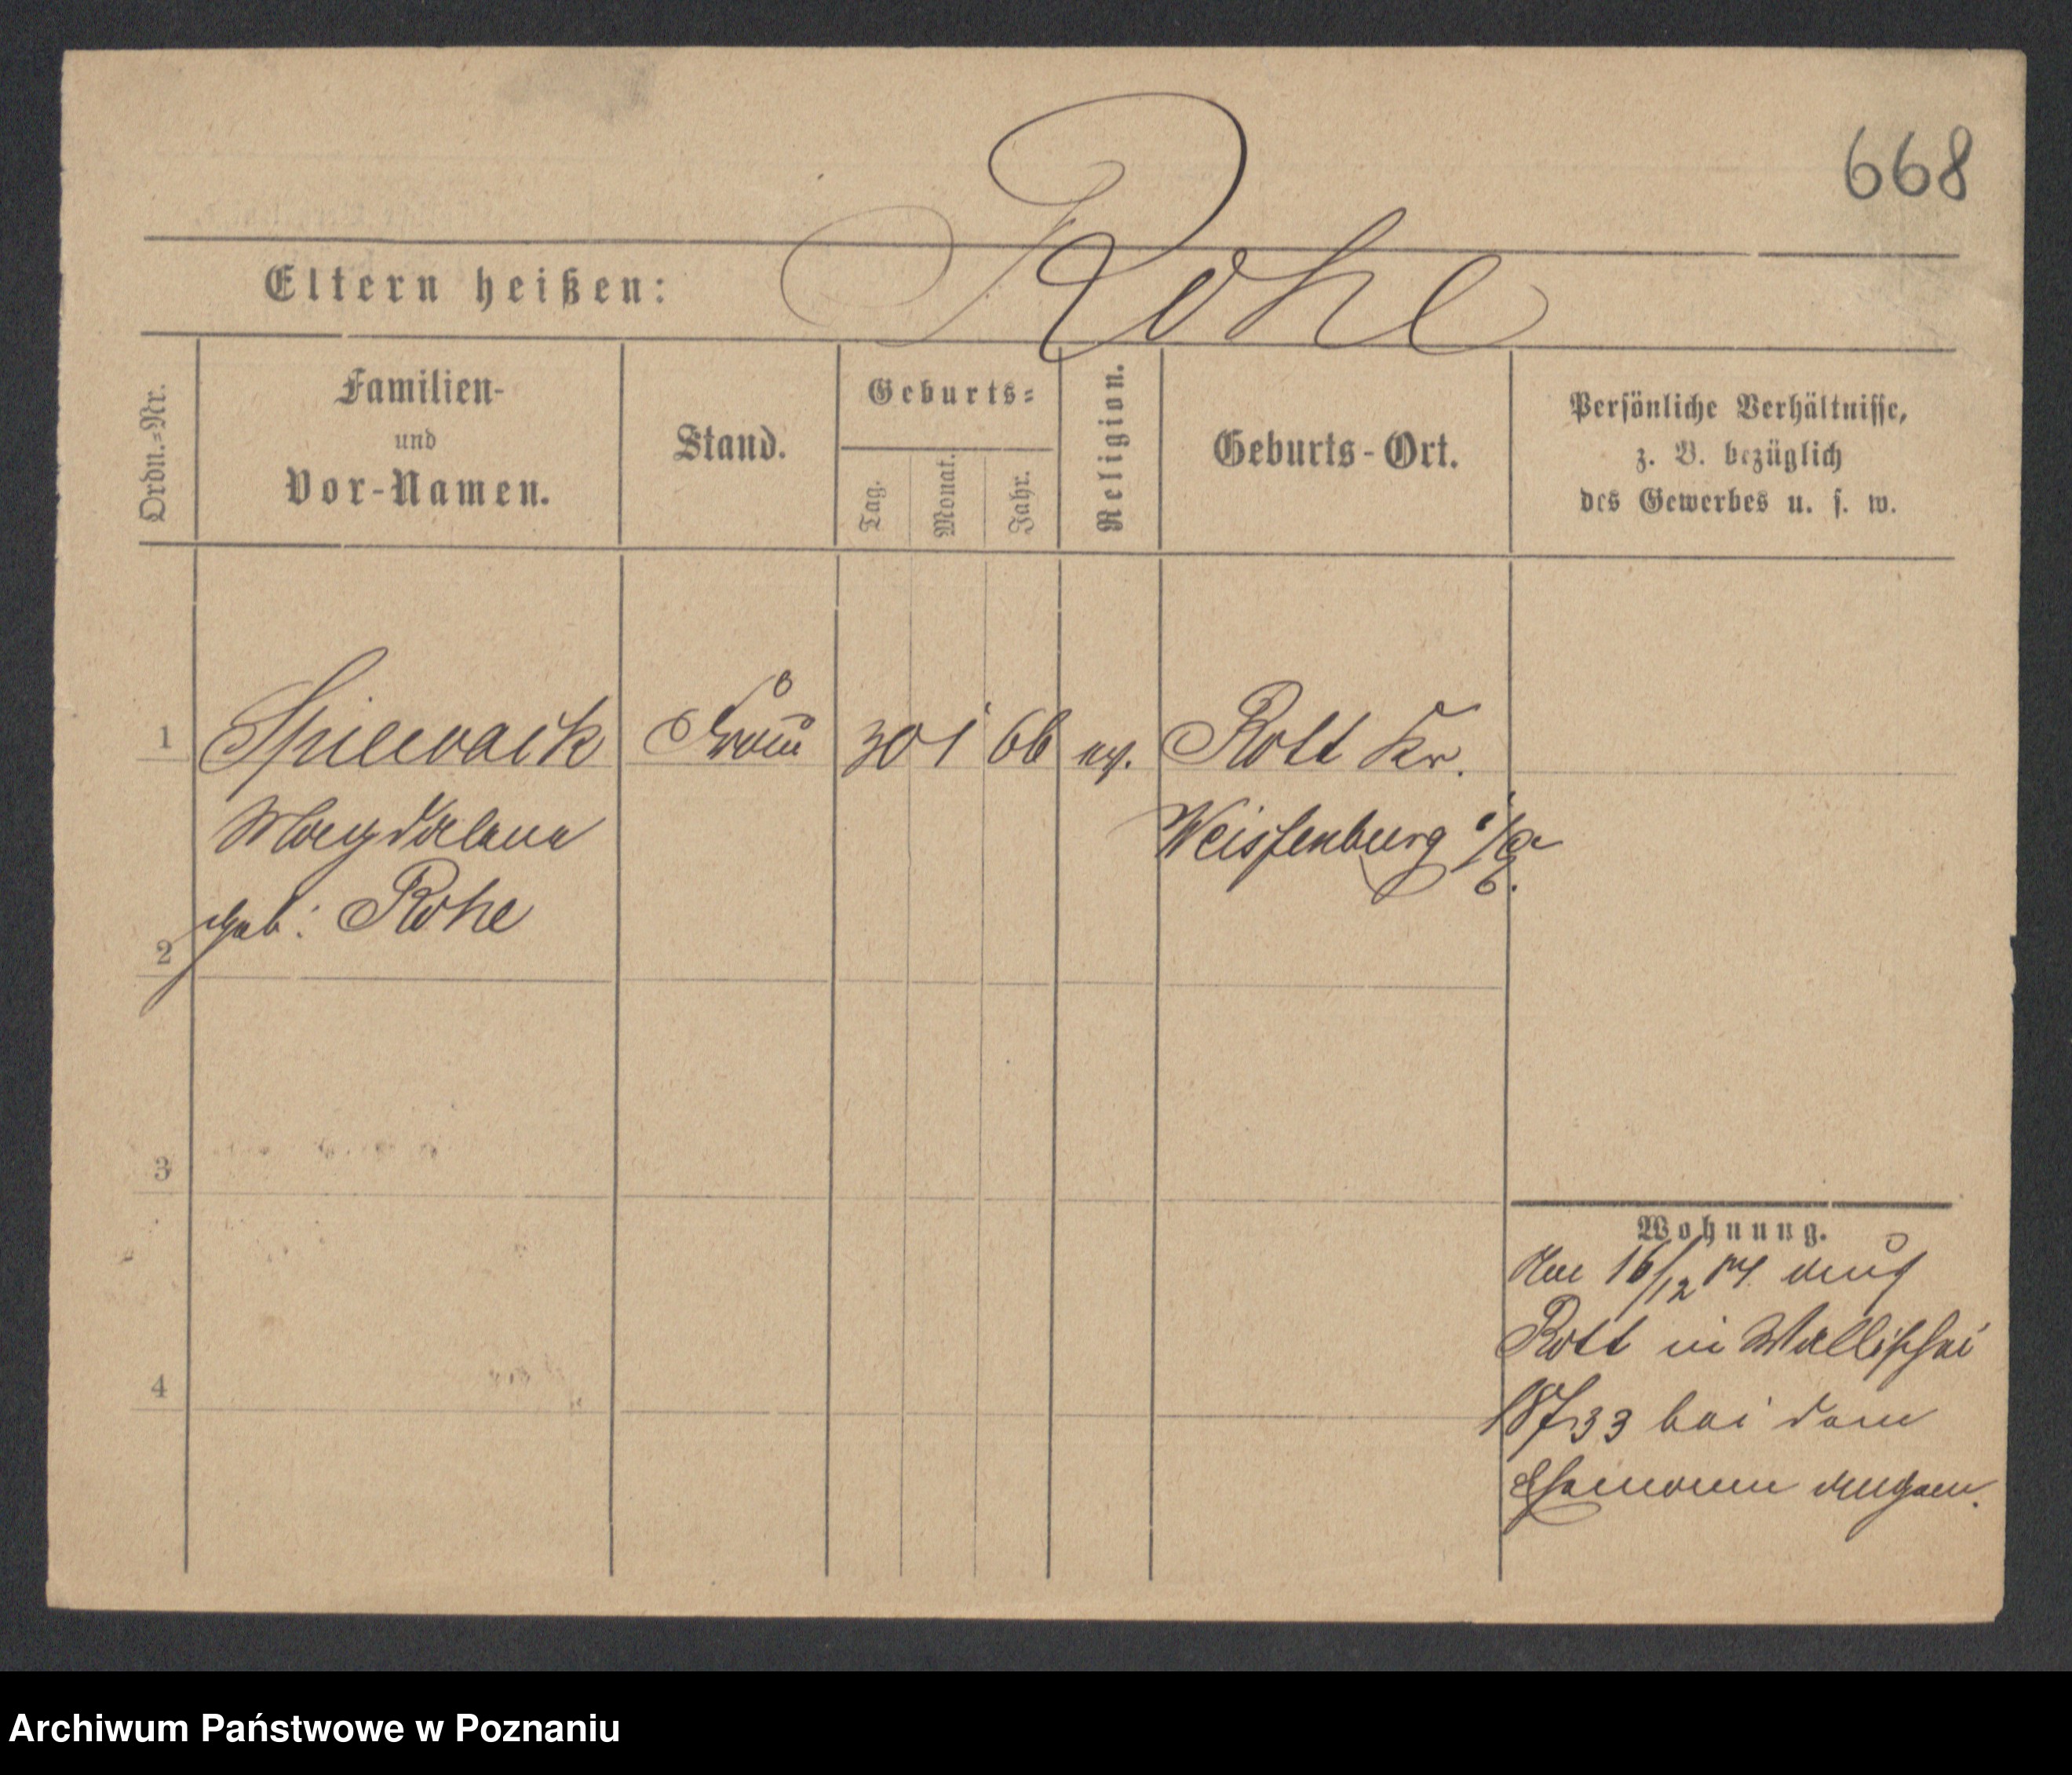 668
Rohe
Eltern heißen:
Ordn.-Nr.
Familien-
und
Vor-Namen.
Stand.
Geburts-
Tag.
Monat.
Jahr.
Religion.
Geburts-Ort.
Persönliche Verhältnisse,
z. B. bezüglich
des Gewerbes u. s. w.
1 Spiewack Frau 30 1 66 ev. Rott Kr.
Magdalena Weissenburg
geb: Rohe
2
3
4
Wohnung.
16/12 aus
Rott in Wallischei
33 bei dem
Ehemann angem.
Archiwum Państwowe w Poznaniu